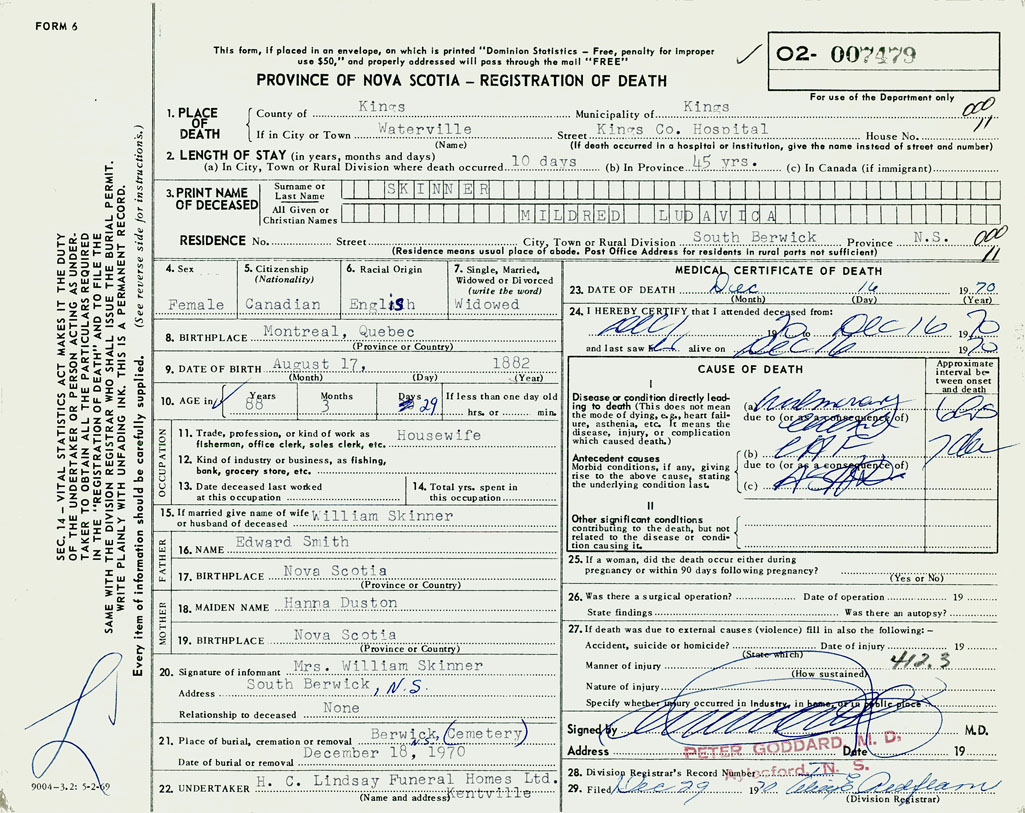 FORM 6
This form, if placed in an envelope, on which is printed "Dominion Statistics – Free, penalty for improper
use $50," and properly addressed will pass through the mail "FREE"
PROVINCE OF NOVA SCOTIA – REGISTRATION OF DEATH
02- 007479
For use of the Department only
SEC. 14 – VITAL STATISTICS ACT MAKES IT THE DUTY
OF THE UNDERTAKER OR PERSON ACTING AS UNDER-
TAKER TO OBTAIN ALL THE PARTICULARS REQUIRED
IN THE "REGISTRATION OF DEATH" AND TO FILE THE
SAME WITH THE DIVISION REGISTRAR WHO SHALL ISSUE THE BURIAL PERMIT.
WRITE PLAINLY WITH UNFADING INK. THIS IS A PERMANENT RECORD.
Every item of information should be carefully supplied. (See reverse side for instructions.)
9004-3.2: 5-2-69
1. PLACE OF DEATH
County of Kings Municipality of Kings 000 11
If in City or Town Waterville Street Kings Co. Hospital House No.
(Name) (If death occurred in a hospital or institution, give the name instead of street and number)
2. LENGTH OF STAY (in years, months and days)
(a) In City, Town or Rural Division where death occurred 10 days (b) In Province 45 yrs. (c) In Canada (if immigrant)
3. PRINT NAME OF DECEASED
Surname or Last Name SKINNER
All Given or Christian Names MILDRED LUDAVICA
RESIDENCE No. Street City, Town or Rural Division South Berwick Province N.S. 000 11
(Residence means usual place of abode. Post Office Address for residents in rural parts not sufficient)
4. Sex Female
5. Citizenship (Nationality) Canadian
6. Racial Origin English
7. Single, Married, Widowed or Divorced (write the word) Widowed
8. BIRTHPLACE Montreal, Quebec
(Province or Country)
9. DATE OF BIRTH August 17, 1882
(Month) (Day) (Year)
10. AGE in Years 88 Months 3 Days 29 If less than one day old hrs. or min.
OCCUPATION
11. Trade, profession, or kind of work as
fisherman, office clerk, sales clerk, etc. Housewife
12. Kind of industry or business, as fishing,
bank, grocery store, etc.
13. Date deceased last worked
at this occupation
14. Total yrs. spent in
this occupation
15. If married give name of wife
or husband of deceased William Skinner
FATHER
16. NAME Edward Smith
17. BIRTHPLACE Nova Scotia
(Province or Country)
MOTHER
18. MAIDEN NAME Hanna Duston
19. BIRTHPLACE Nova Scotia
(Province or Country)
20. Signature of informant Mrs. William Skinner
Address South Berwick, N.S.
Relationship to deceased None
21. Place of burial, cremation or removal Berwick, N.S. (Cemetery)
Date of burial or removal December 18, 1970
22. UNDERTAKER H. C. Lindsay Funeral Homes Ltd.
(Name and address) Kentville
MEDICAL CERTIFICATE OF DEATH
23. DATE OF DEATH Dec 16 1970
(Month) (Day) (Year)
24. I HEREBY CERTIFY that I attended deceased from:
Dec 1 1970 to Dec 16 1970
and last saw alive on Dec 16 1970
CAUSE OF DEATH
Approximate
interval be-
tween onset
and death
I
Disease or condition directly lead-
ing to death (This does not mean
the mode of dying, e.g., heart fail-
ure, asthenia, etc. It means the
disease, injury, or complication
which caused death.)
(a) Pulmonary
due to (or as a consequence of)
Antecedent causes
Morbid conditions, if any, giving
rise to the above cause, stating
the underlying condition last.
(b)
due to (or as a consequence of)
(c) ASHD
II
Other significant conditions
contributing to the death, but not
related to the disease or condi-
tion causing it.
25. If a woman, did the death occur either during
pregnancy or within 90 days following pregnancy?
(Yes or No)
26. Was there a surgical operation? Date of operation 19
State findings Was there an autopsy?
27. If death was due to external causes (violence) fill in also the following:–
Accident, suicide or homicide? Date of injury 19
(State which)
Manner of injury 412.3
(How sustained)
Nature of injury
Specify whether injury occurred in Industry, in home, or in public place
Signed by M.D.
Address Date 19
PETER GODDARD, M. D.
Aylesford, N. S.
28. Division Registrar's Record Number
29. Filed Dec 29 1970
(Division Registrar)